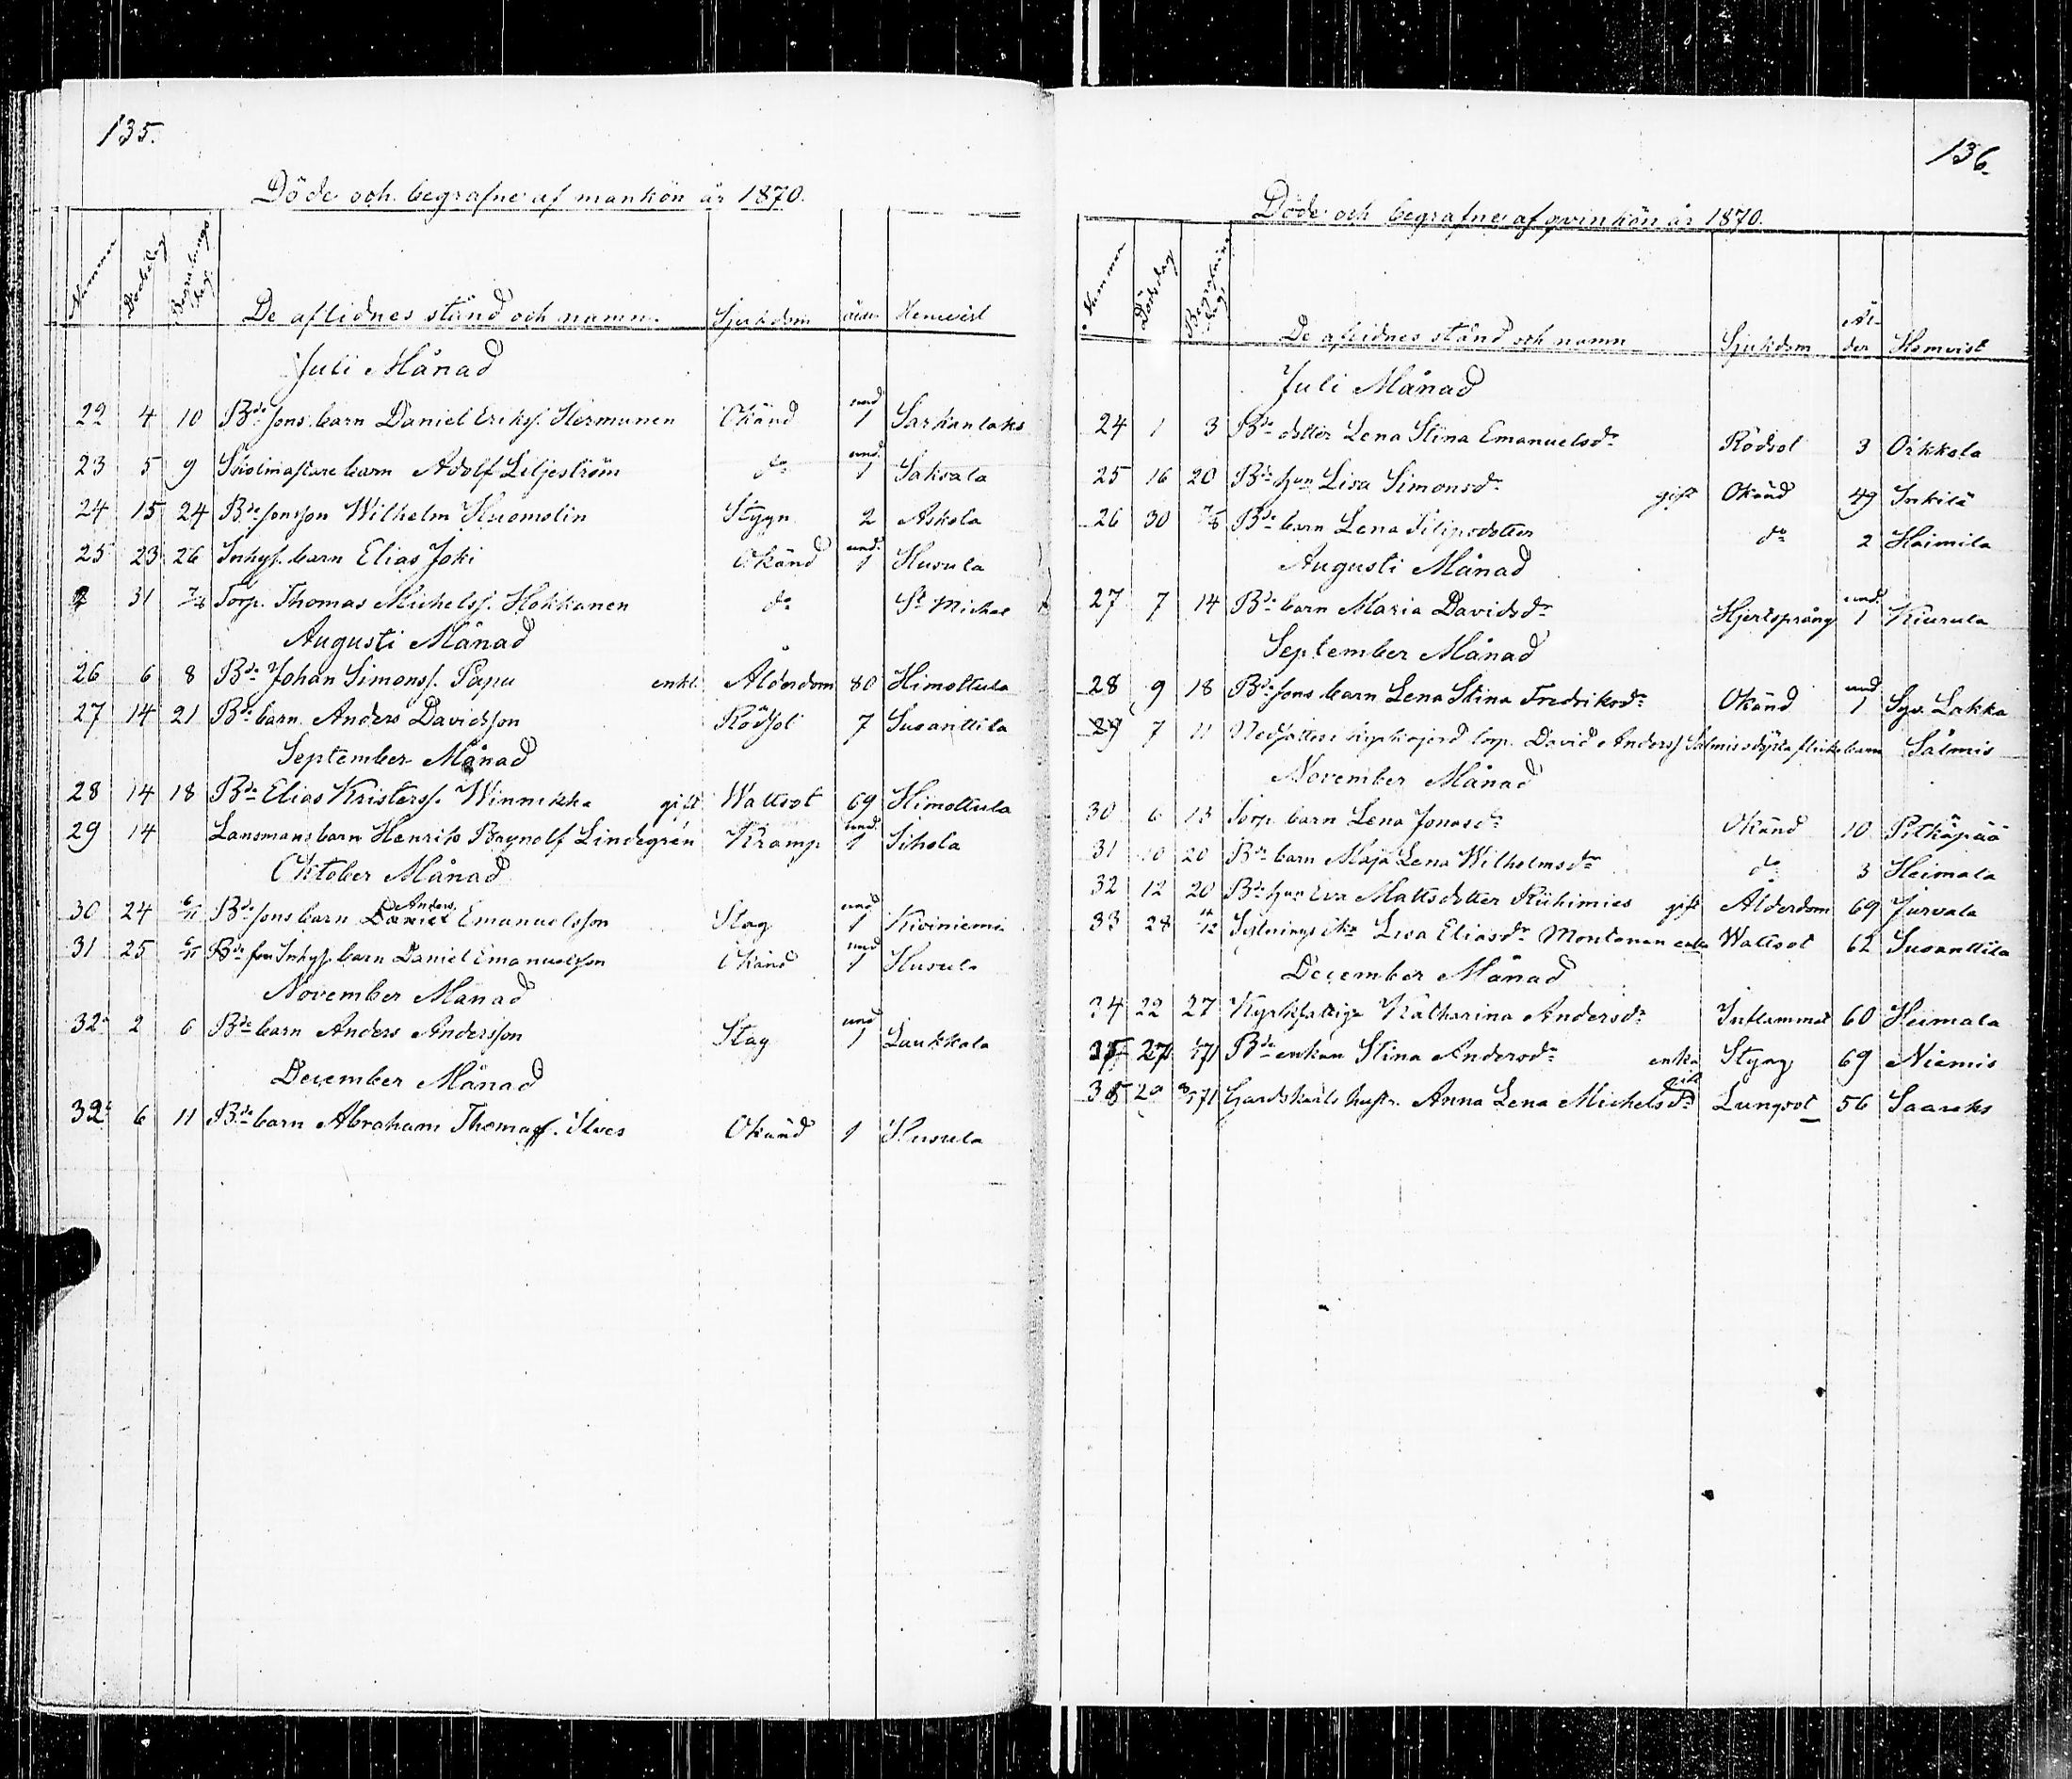 135.
Döde och begrafne af mankön år 1870.
Nummer Dödsdag Begrafnings dag De aflidnes stånd och namn Sjukdom ålder Hemvist
Juli Månad
22 4 10 Bde sons barn Daniel Eriksf. Hermunen Okänd und 1 Sarkanlaks
23 5 9 barn Adolf Liljeström do und. 1 Saksala
24 15 24 Bde sonson Wilhelm Huomolin Stygn 2 Askola
25 23 26 Inhys. barn Elias Joki Okänd und. 1 Husula
31 7/8 Torp. Thomas Michelsf. Hokkanen do St Michel
Augusti Månad
26 6 8 Bde Johan Simonsf. Papu enkl. Ålderdom 80 Himottula
27 14 21 Bde barn Anders Davidsson Rödsot 7 Suoanttila
September Månad
28 14 18 Bde Elias Kristersf. Winnikka gift Wattsot 69 Himottula
29 14 Länsmans barn Henrik Brynolf Lindegrén Kramp und. 1 Sihola
Oktober Månad
30 24 6/11 Bde sons barn Daniel Anders Emanuelsson Slag und 1 Kiviniemi
31 25 6/11 Bde Inhys. barn Daniel Emanuelsson Okänd und 1 Husula
November Månad
32a 2 6 Bde barn Anders Andersson Slag und 1 Laukkala
December Månad
32b 6 11 Bde barn Abraham Thomasf. Ilves Okänd 1 Husula
136.
Döde och begrafne af qvinkön år 1870.
Nummer Dödsdag Begrafnings dag De aflidnes stånd och namn Sjukdom Ålder Hemvist
Juli Månad
24 1 3 Bde dotter Lena Stina Emanuelsdr Rödsot 3 Orkkola
25 16 20 Bde hu Lisa Simonsdr gift Okänd 49 Inkilä
26 30 7/8 Bde barn Lena Filipsdotter do 2 Haimila
Augusti Månad
27 7 14 Bde barn Maria Davidsdr Hjertsprång und. 1 Kiurula
September Månad
28 9 18 Bde sons barn Lena Stina Fredriksdr Okänd und 1 Syv. Lakka
29 7 11 Torp. David Andersf. Salmis flickebarn Salmis
November Månad
30 6 13 Torp. barn Lena Jonasdr Okänd 10 Pitkäpää
31 10 20 Bde barn Maja Lena Wilhelmsdr do 3 Heimala
32 12 20 Bde hu Eva Mattsdotter Riihimies gift Ålderdom 69 Jurvala
33 28 4/12 Sytnings Lisa Eliasdr Montonen enka Wattsot 62 Suoanttila
December Månad
34 22 27 Kyrkfattiga Katharina Andersdr Inflammat 60 Heimala
35 27 1/71 Bde enkan Stina Andersdr enka Styng 69 Niemis
36 29 8/1 71 Gårdskarls hustr. Anna Lena Michelsdr gift Lungsot 56 Saareks